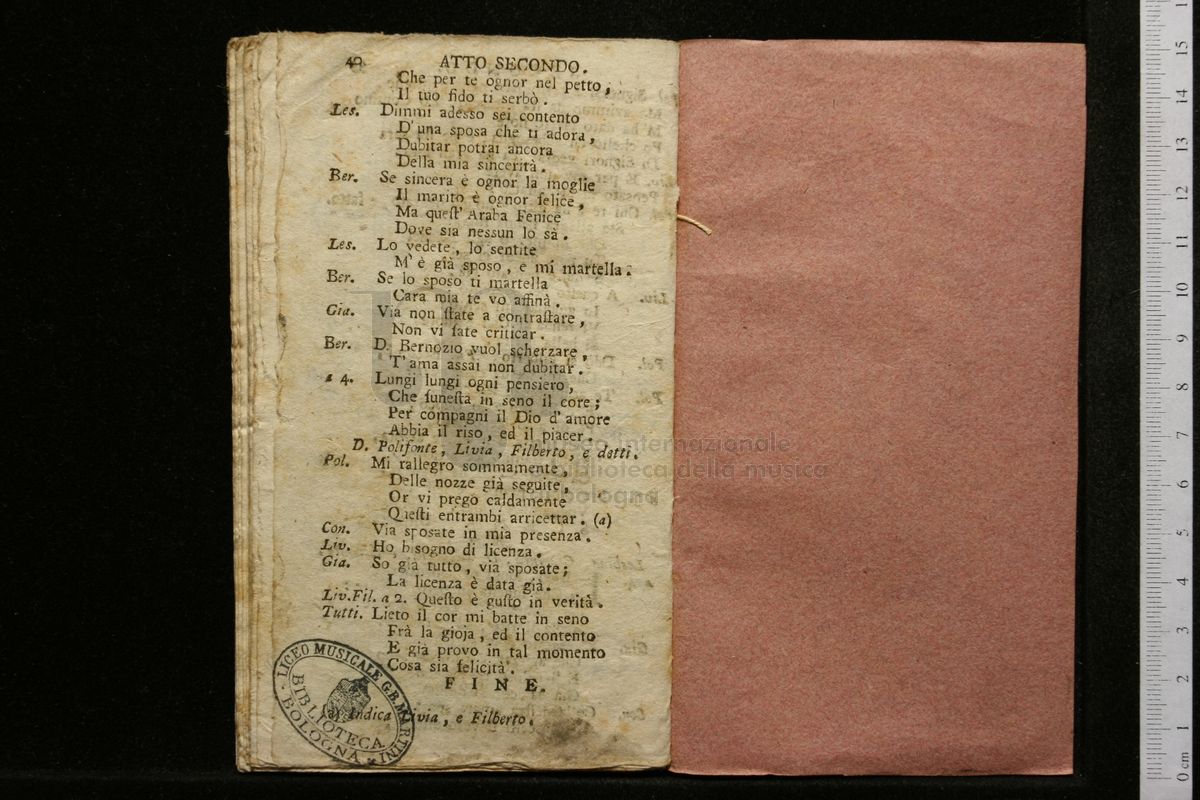 40 ATTO SECONDO.
Che per te ognor nel petto,
Il tuo fido ti serbò.
Les. Dimmi adesso sei contento
D'una sposa che ti adora,
Dubitar potrai ancora
Della mia sincerità.
Ber. Se sincera è ognor la moglie
Il marito è ognor felice,
Ma quest' Araba Fenice
Dove sia nessun lo sà.
Les. Lo vedete, lo sentite
M'è già sposo, e mi martella.
Ber. Se lo sposo ti martella
Cara mia te vo affinà.
Gia. Via non state a contrastare,
Non vi fate criticar.
Ber. D. Bernozio vuol scherzare,
T'ama assai non dubitar.
a 4. Lungi lungi ogni pensiero,
Che funesta in seno il core;
Per compagni il Dio d'amore
Abbia il riso, ed il piacer.
D. Polifonte, Livia, Filberto, e detti.
Pol. Mi rallegro sommamente,
Delle nozze già seguite,
Or vi prego caldamente
Questi entrambi arricettar. (a)
Con. Via sposate in mia presenza.
Liv. Ho bisogno di licenza.
Gia. So già tutto, via sposate;
La licenza è data già.
Liv. Fil. a 2. Questo è gusto in verità.
Tutti. Lieto il cor mi batte in seno
Frà la gioja, ed il contento
E già provo in tal momento
Cosa sia felicità.
FINE.
(a) Indica Livia, e Filberto.
LICEO MUSICALE G.B. MARTINI
BIBLIOTECA
BOLOGNA
Museo internazionale
e biblioteca della musica
di Bologna
0 cm 1 2 3 4 5 6 7 8 9 10 11 12 13 14 15